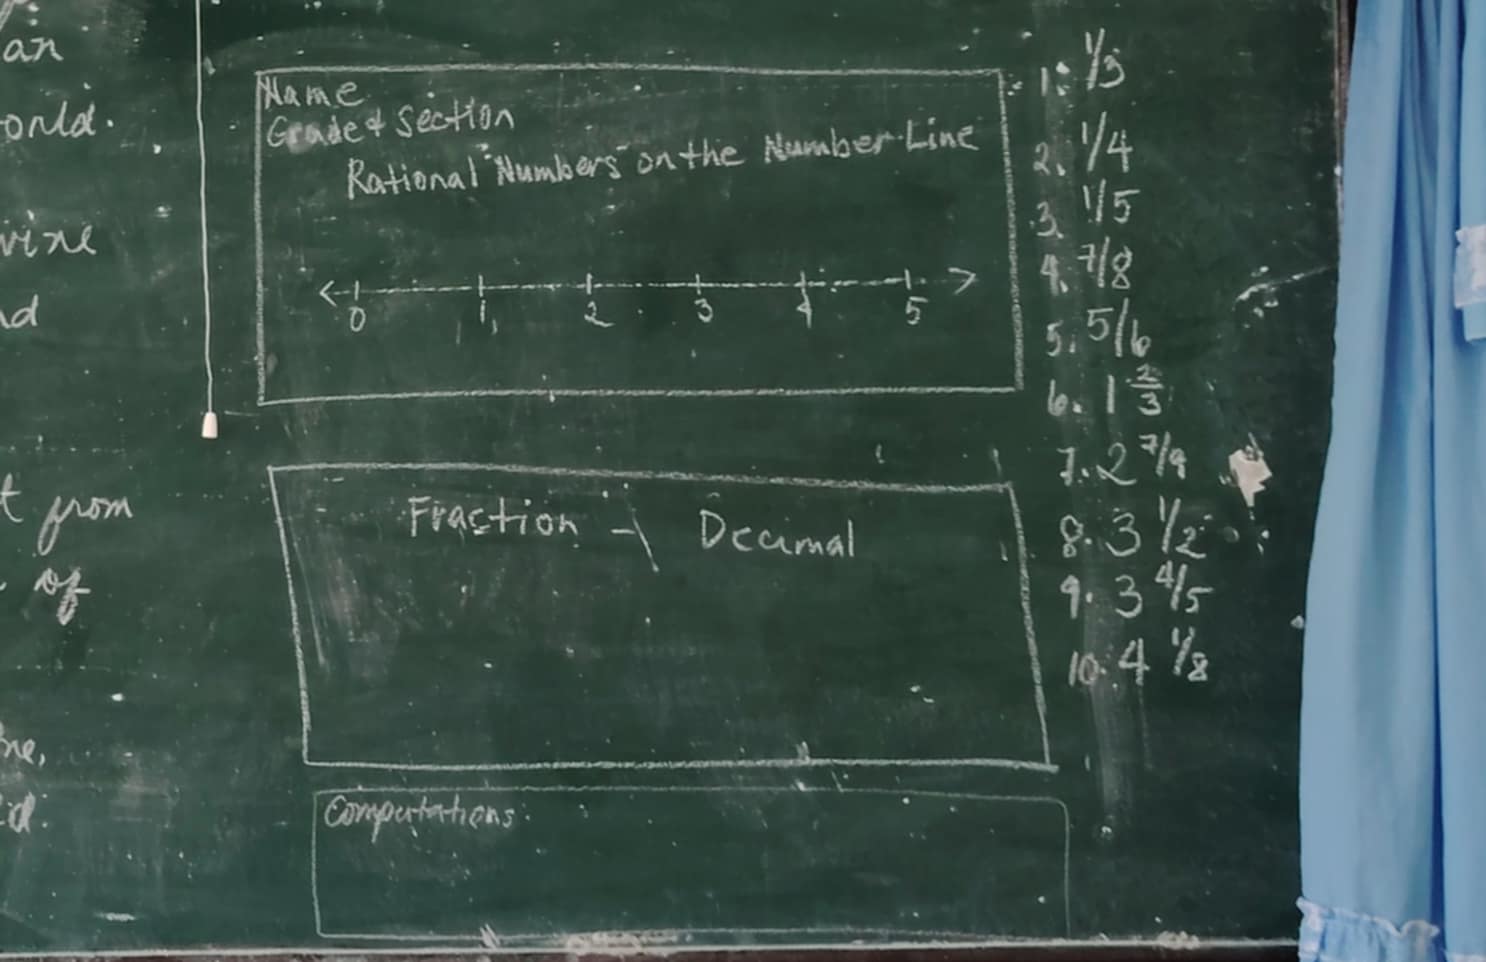 an
vine
t from
of
Name
Grade & Section
Rational Numbers on the Number Line
0 1 2 3 4 5
Fraction - Decimal
Computations:
1. 1/3
2. 1/4
3. 1/5
4. 7/8
5. 5/6
6. 1 2/3
7. 2 7/9
8. 3 1/2
9. 3 4/5
10. 4 1/8